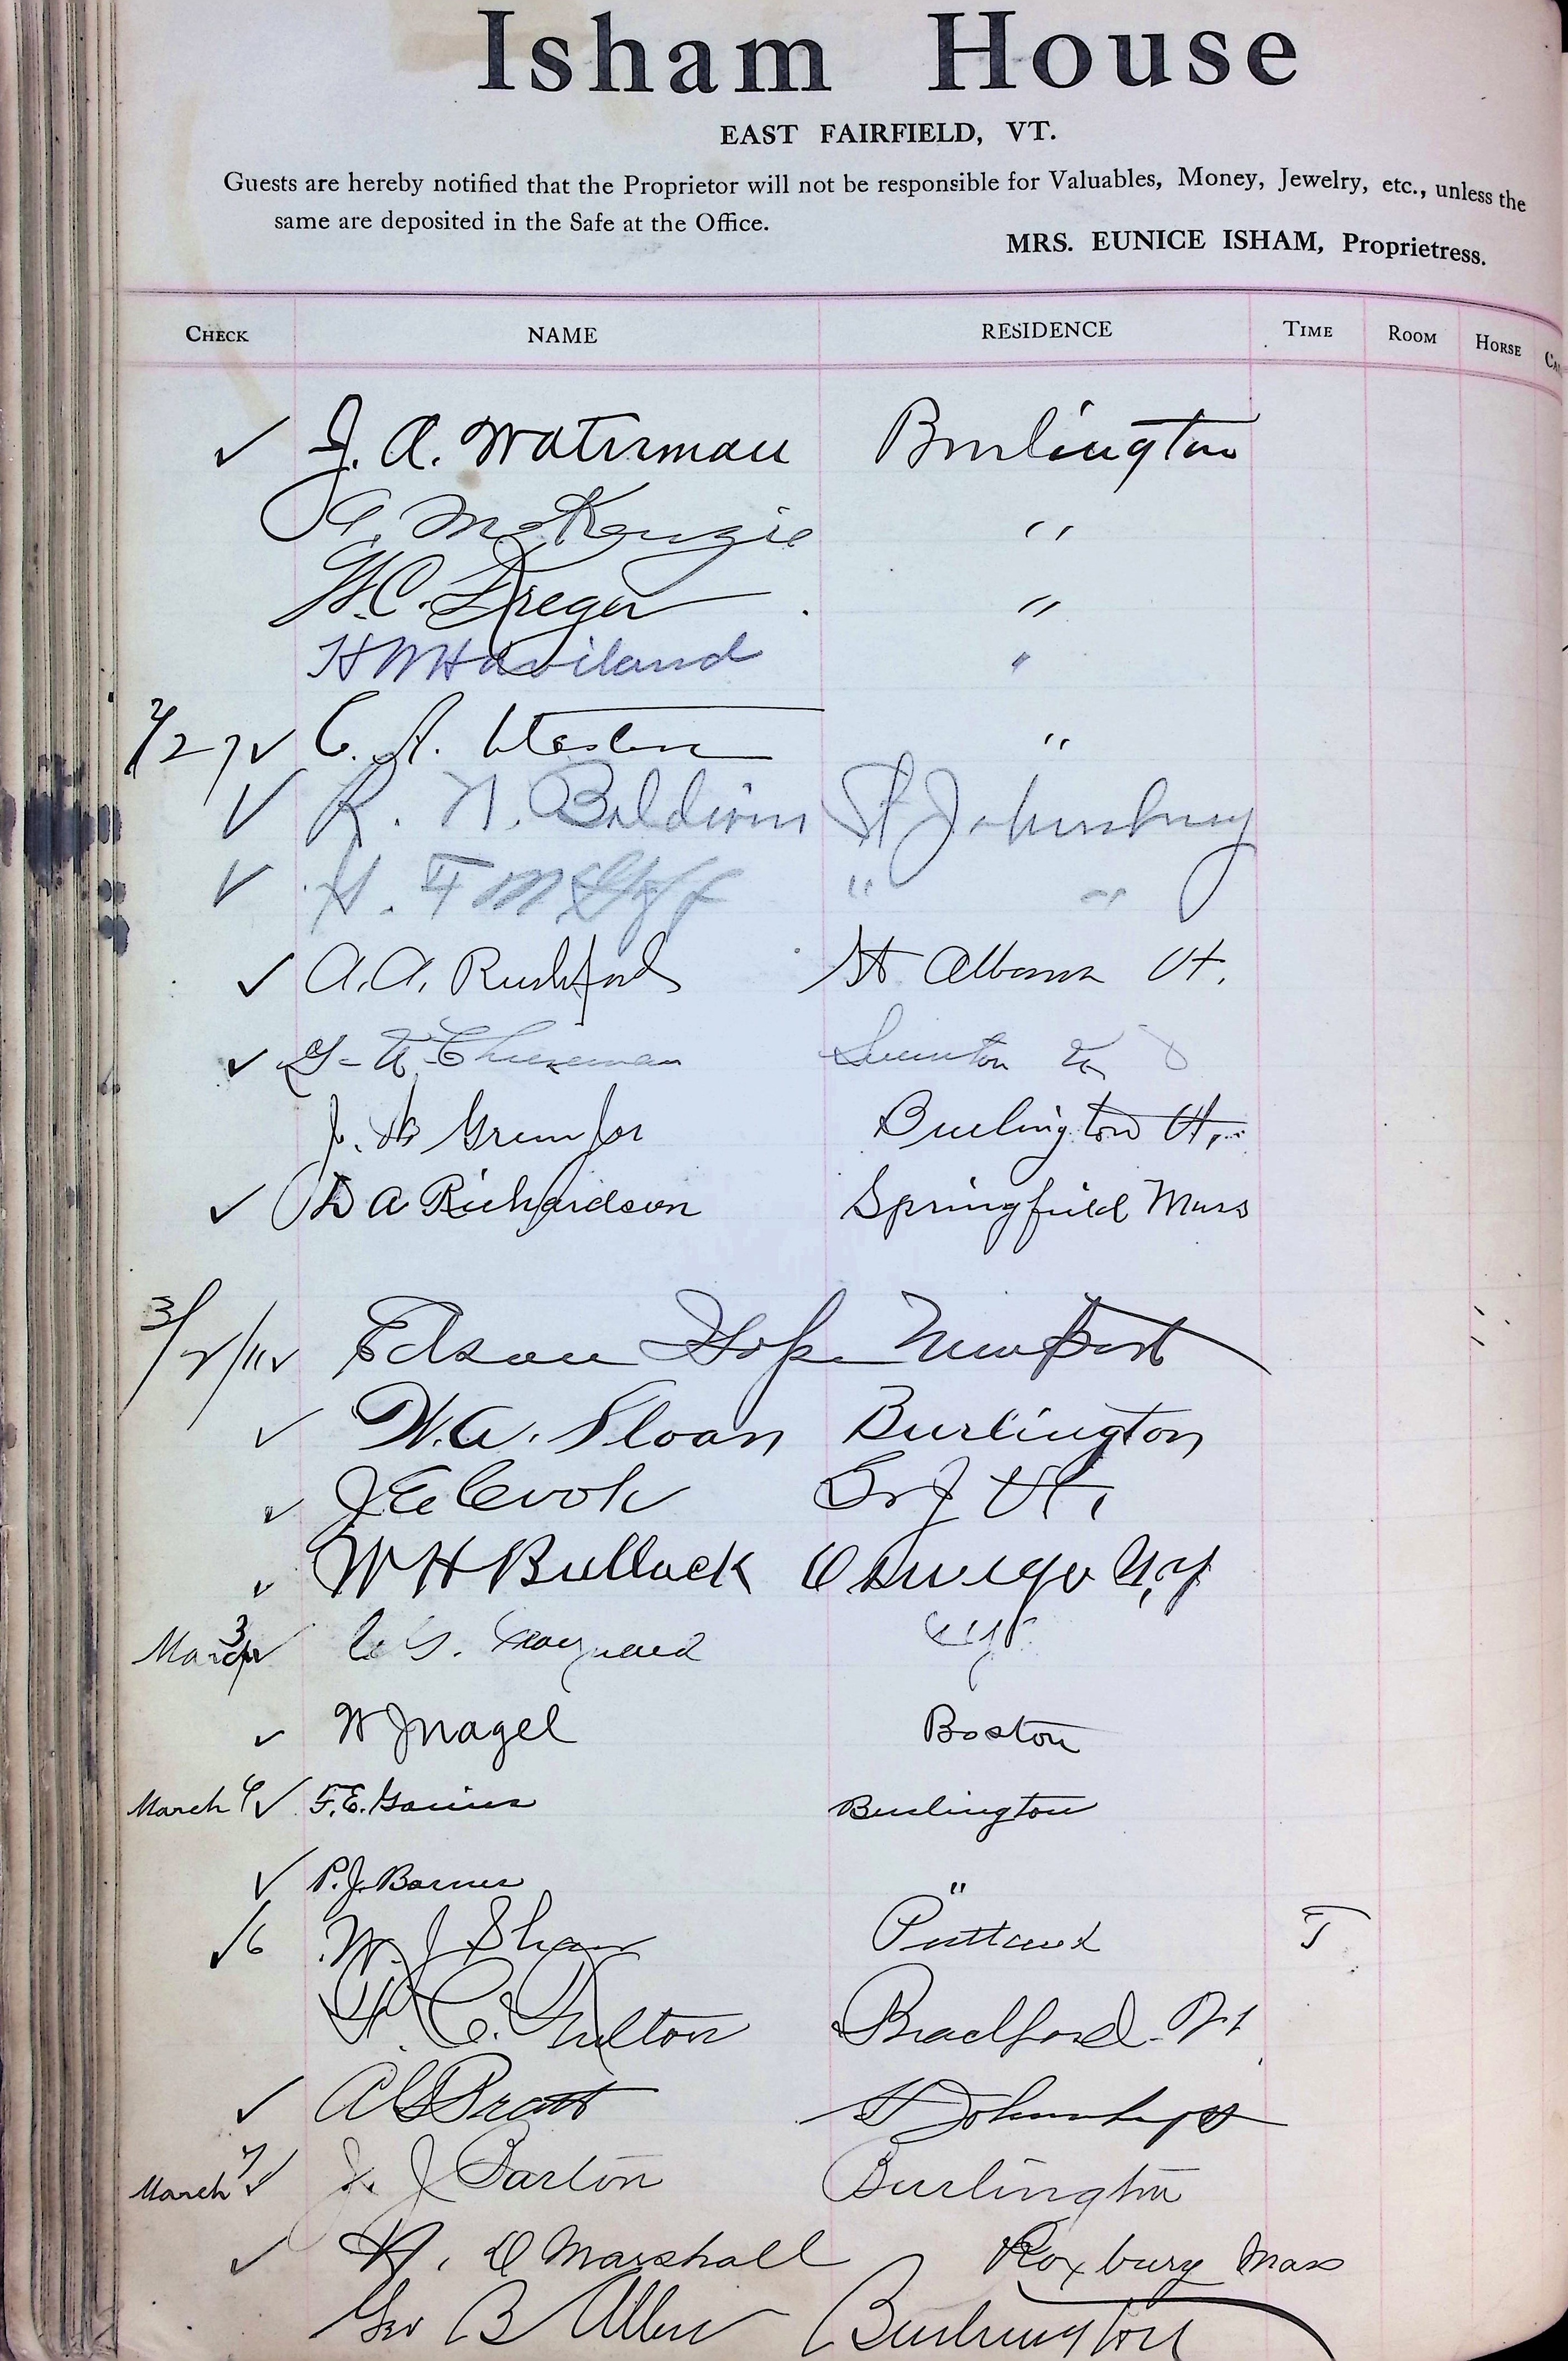 Isham House
EAST FAIRFIELD, VT.
Guests are hereby notified that the Proprietor will not be responsible for Valuables, Money, Jewelry, etc., unless the
same are deposited in the Safe at the Office.
MRS. EUNICE ISHAM, Proprietress.
CHECK NAME RESIDENCE TIME ROOM HORSE
✓ J. A. Waterman Burlington
A. McKenzie "
W.C. Dreger "
H M Haviland "
2/27 ✓ C. A. "
✓ R. N. Baldwin St Johnsbury
✓ H. F " "
✓ A. A. Rushford St Albans Vt.
✓ Cheeseman Swanton Vt
J. Burlington Vt.
✓ D A Richardson Springfield Mass
3/2/11 ✓ Edson Newport
✓ W. A. Sloan Burlington
✓ J E Cook Vt.
✓ W H Bullock Oswego N.Y
March 3 ✓ Maynard
✓ W J Nagel Boston
March 4 ✓ F. E. Burlington
✓ P. J. Barnes "
✓6 W. J Shaw Rutland T
H. C. Fulton Bradford Vt
✓ Pratt St Johnsbury
March 7 ✓ J. J Barton Burlington
✓ D Marshall Roxbury Mass
Geo B Allen Burlington